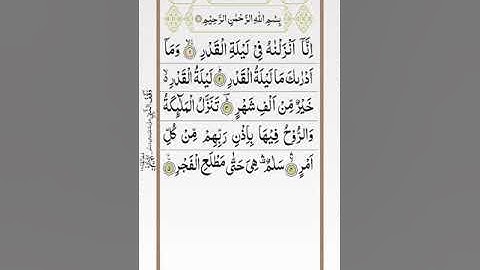 بِسْمِ اللّٰهِ الرَّحْمٰنِ الرَّحِیْمِ
اِنَّاۤ اَنْزَلْنٰهُ فِیْ لَیْلَةِ الْقَدْرِ ۚ﴿۱﴾ وَمَاۤ
اَدْرٰىكَ مَا لَیْلَةُ الْقَدْرِ ؕ﴿۲﴾ لَیْلَةُ الْقَدْرِ ۙ۬
خَیْرٌ مِّنْ اَلْفِ شَهْرٍ ؕ﴿۳﴾ تَنَزَّلُ الْمَلٰٓىِٕكَةُ
وَالرُّوْحُ فِیْهَا بِاِذْنِ رَبِّهِمْ ۚ مِنْ كُلِّ
اَمْرٍ ۙ﴿۴﴾ سَلٰمٌ ۛ۫ هِیَ حَتّٰی مَطْلَعِ الْفَجْرِ ﴿۵﴾